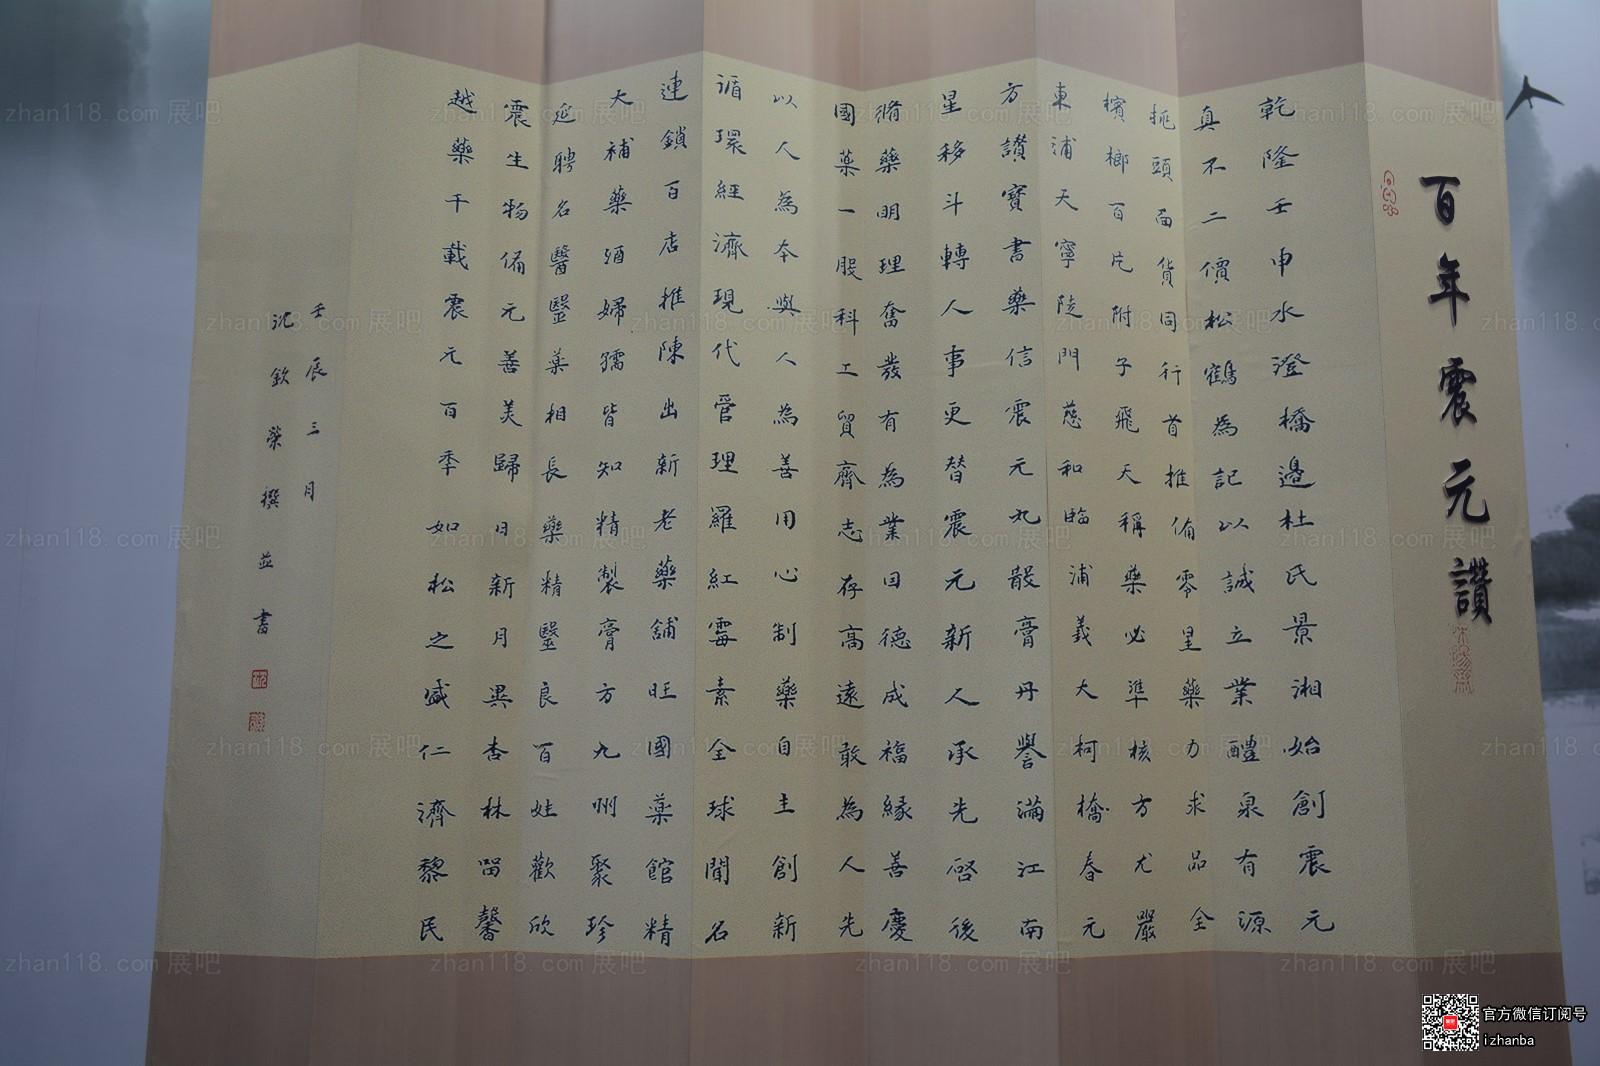 百年震元讚
乾隆壬申水澄橋邊杜氏景湘始創震元
真不二價松鶴為記以誠立業醴泉有源
挑頭面貨同行首推俏零星藥力求品全
檳榔百片附子飛天稱藥必準核方尤嚴
東浦天寧陡門慈和臨浦義大柯橋春元
方讚寶書藥信震元丸散膏丹譽滿江南
星移斗轉人事更替震元新人承先啓後
脩藥明理奮發有為業因德成福緣善慶
國藥一股科工貿齊志存高遠敢為人先
以人為本與人為善用心制藥自主創新
循環經濟現代管理羅紅霉素全球聞名
連鎖百店推陳出新老藥舖旺國藥館精
大補藥酒婦孺皆知精製膏方九州聚珍
延聘名醫毉藥相長藥精毉良百姓歡欣
震生物備元善美歸日新月異杏林留馨
越藥千載震元百年如松之盛仁濟黎民
壬辰三月
沈欽榮撰並書
zhan118.com 展吧
官方微信订阅号
izhanba